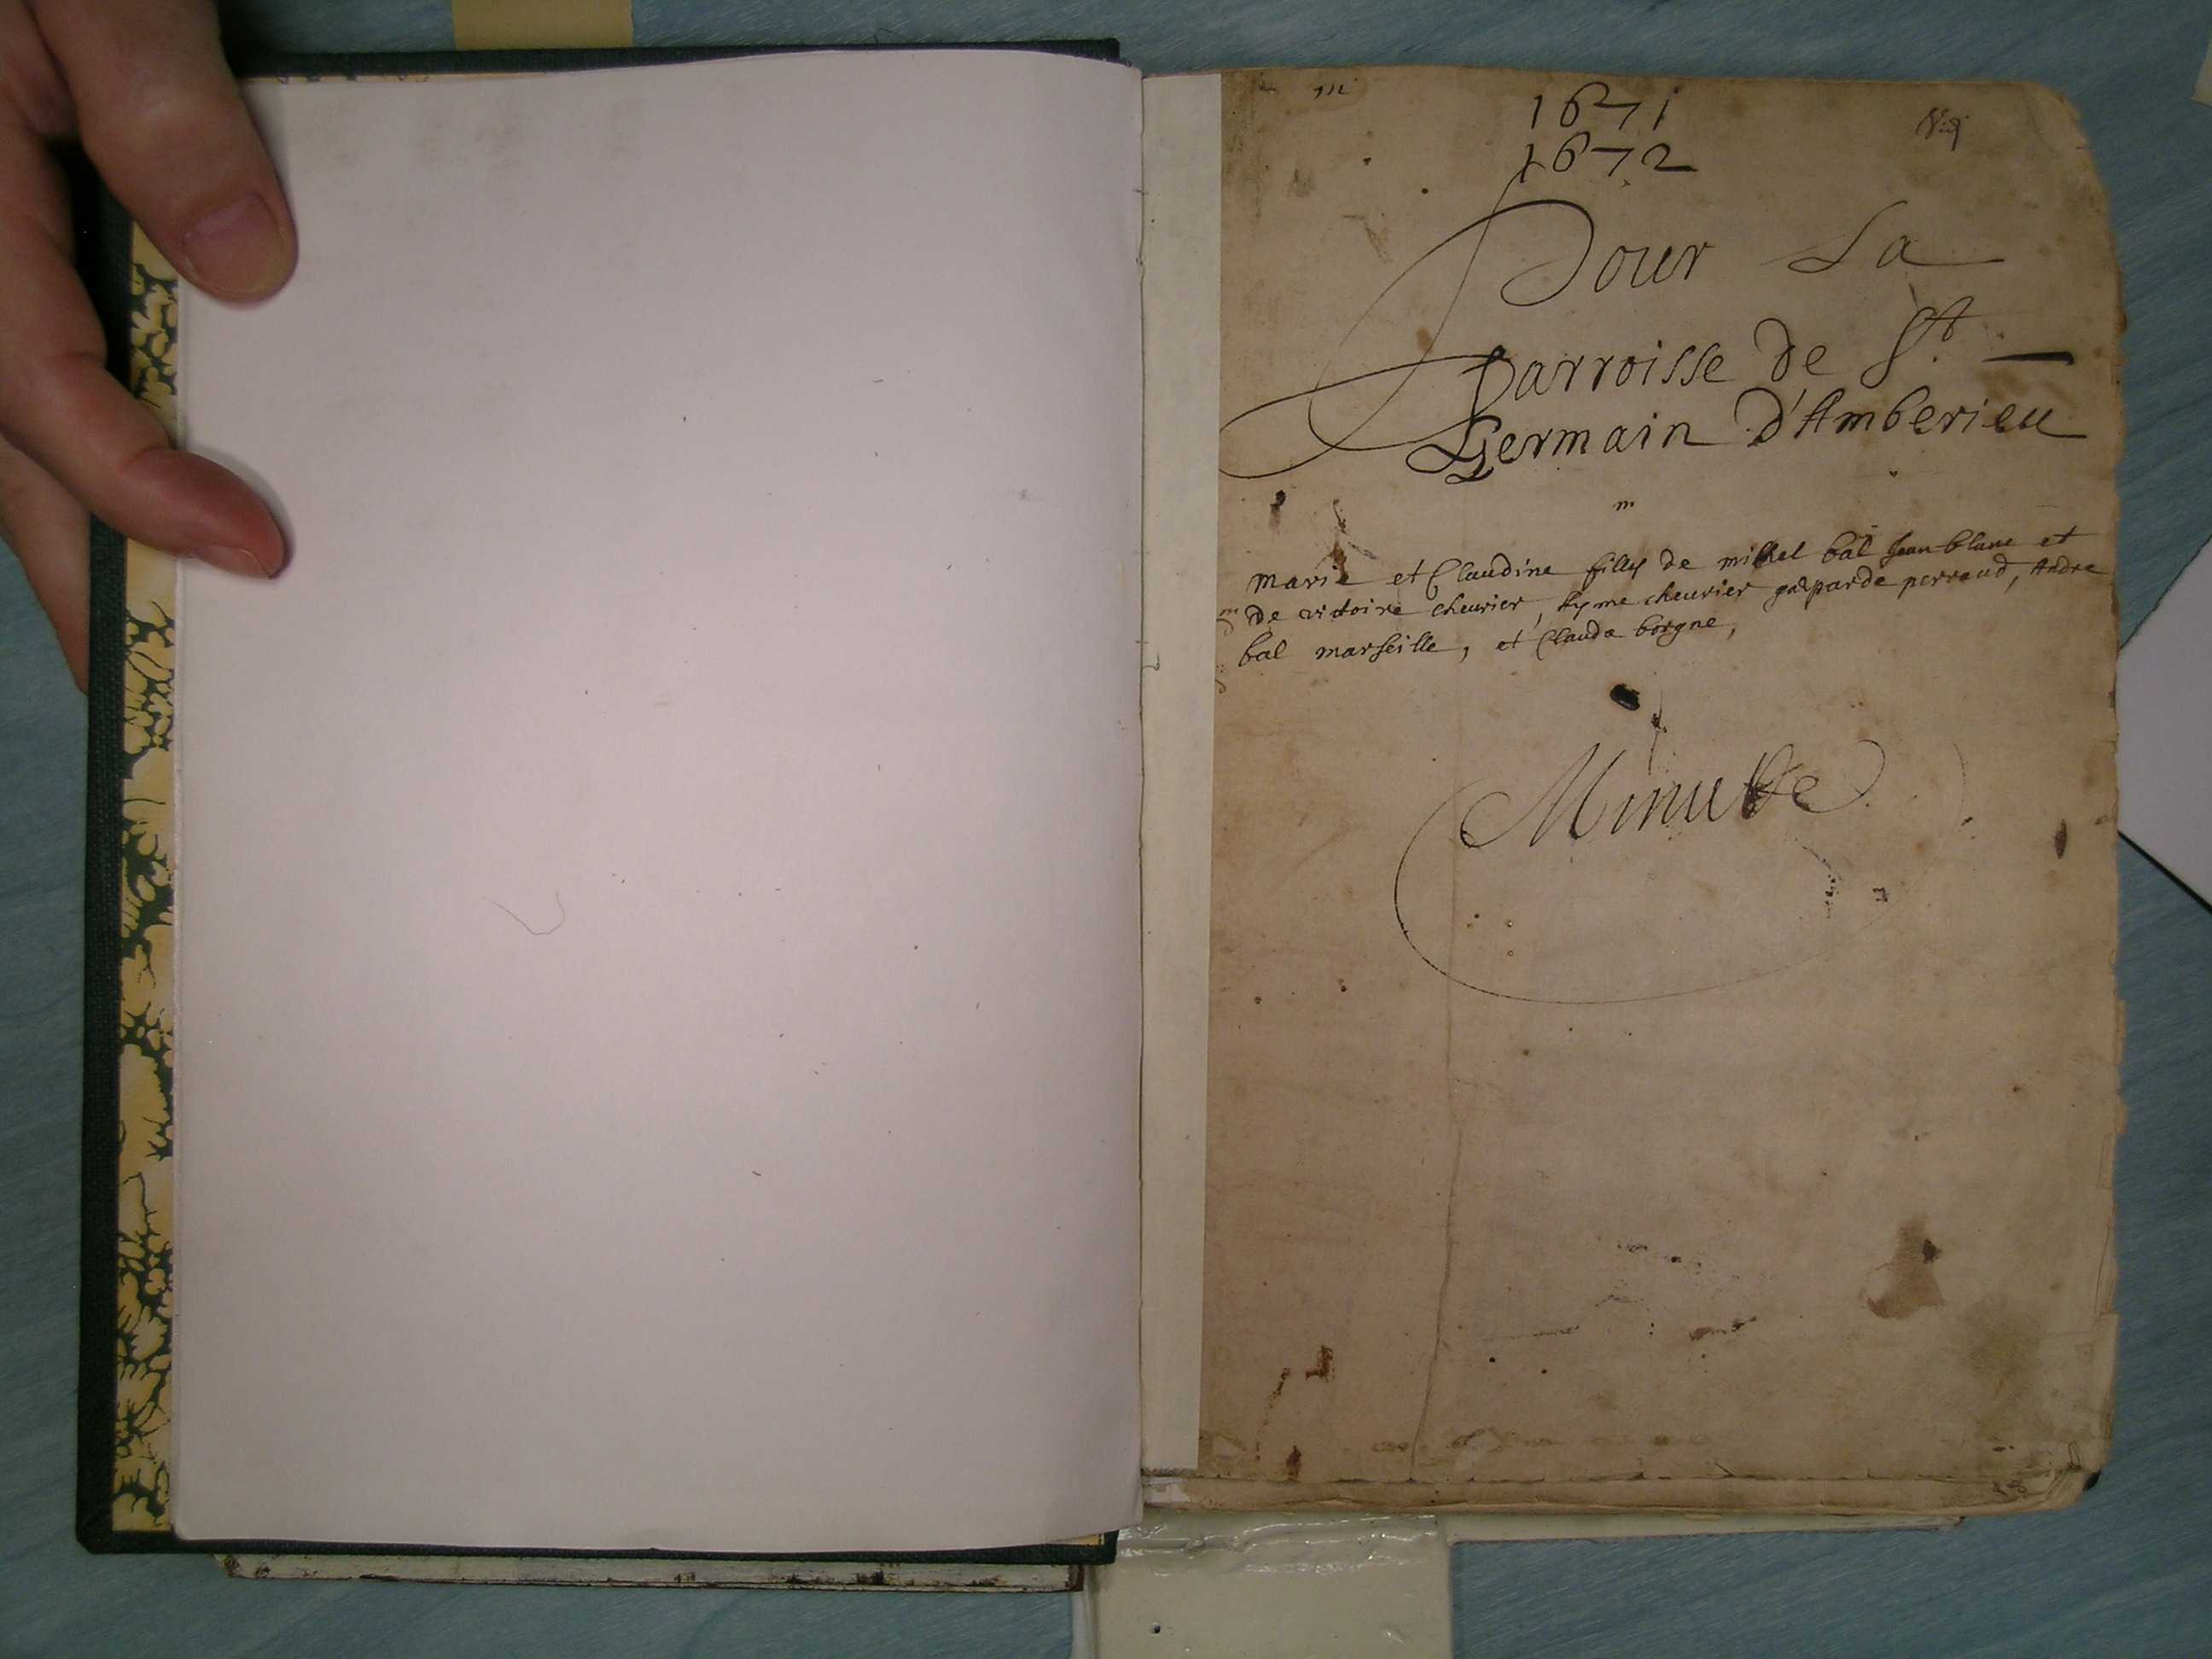 1671
1672
Pour La
Parroisse de St
Germain d'Amberieu
marie et Claudine filles de michel bal Jean blanc et
de victoire cheurier, Ayme cheurier gasparde perraud, Andre
bal marseille, et Clauda borgne,
Minutte